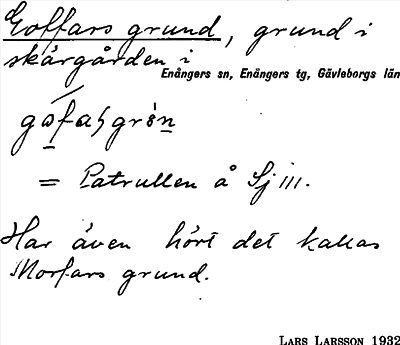 Goffars grund, grund i
skärgården i
Enångers sn, Enångers tg, Gävleborgs län
= Patrullen å Sj III.
Har även hört det kallas
Morfars grund.
LARS LARSSON 1932